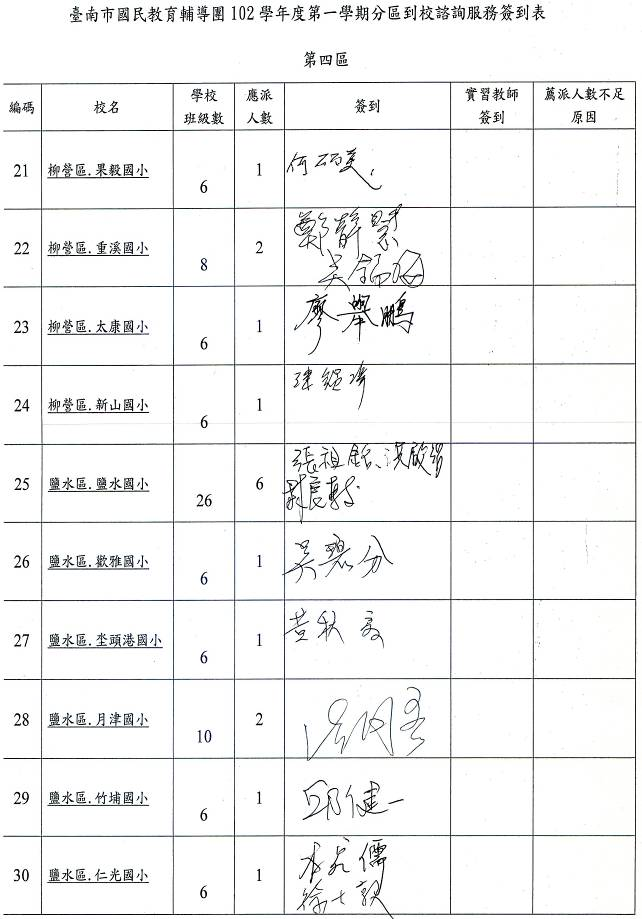 臺南市國民教育輔導團 102 學年度第一學期分區到校諮詢服務簽到表
第四區
編碼 校名 學校班級數 應派人數 簽到 實習教師簽到 薦派人數不足原因
21 柳營區.果毅國小 6 1
22 柳營區.重溪國小 8 2
23 柳營區.太康國小 6 1 廖舉鵬
24 柳營區.新山國小 6 1
25 鹽水區.鹽水國小 26 6
26 鹽水區.歡雅國小 6 1 吳碧分
27 鹽水區.坔頭港國小 6 1
28 鹽水區.月津國小 10 2
29 鹽水區.竹埔國小 6 1 邱健一
30 鹽水區.仁光國小 6 1